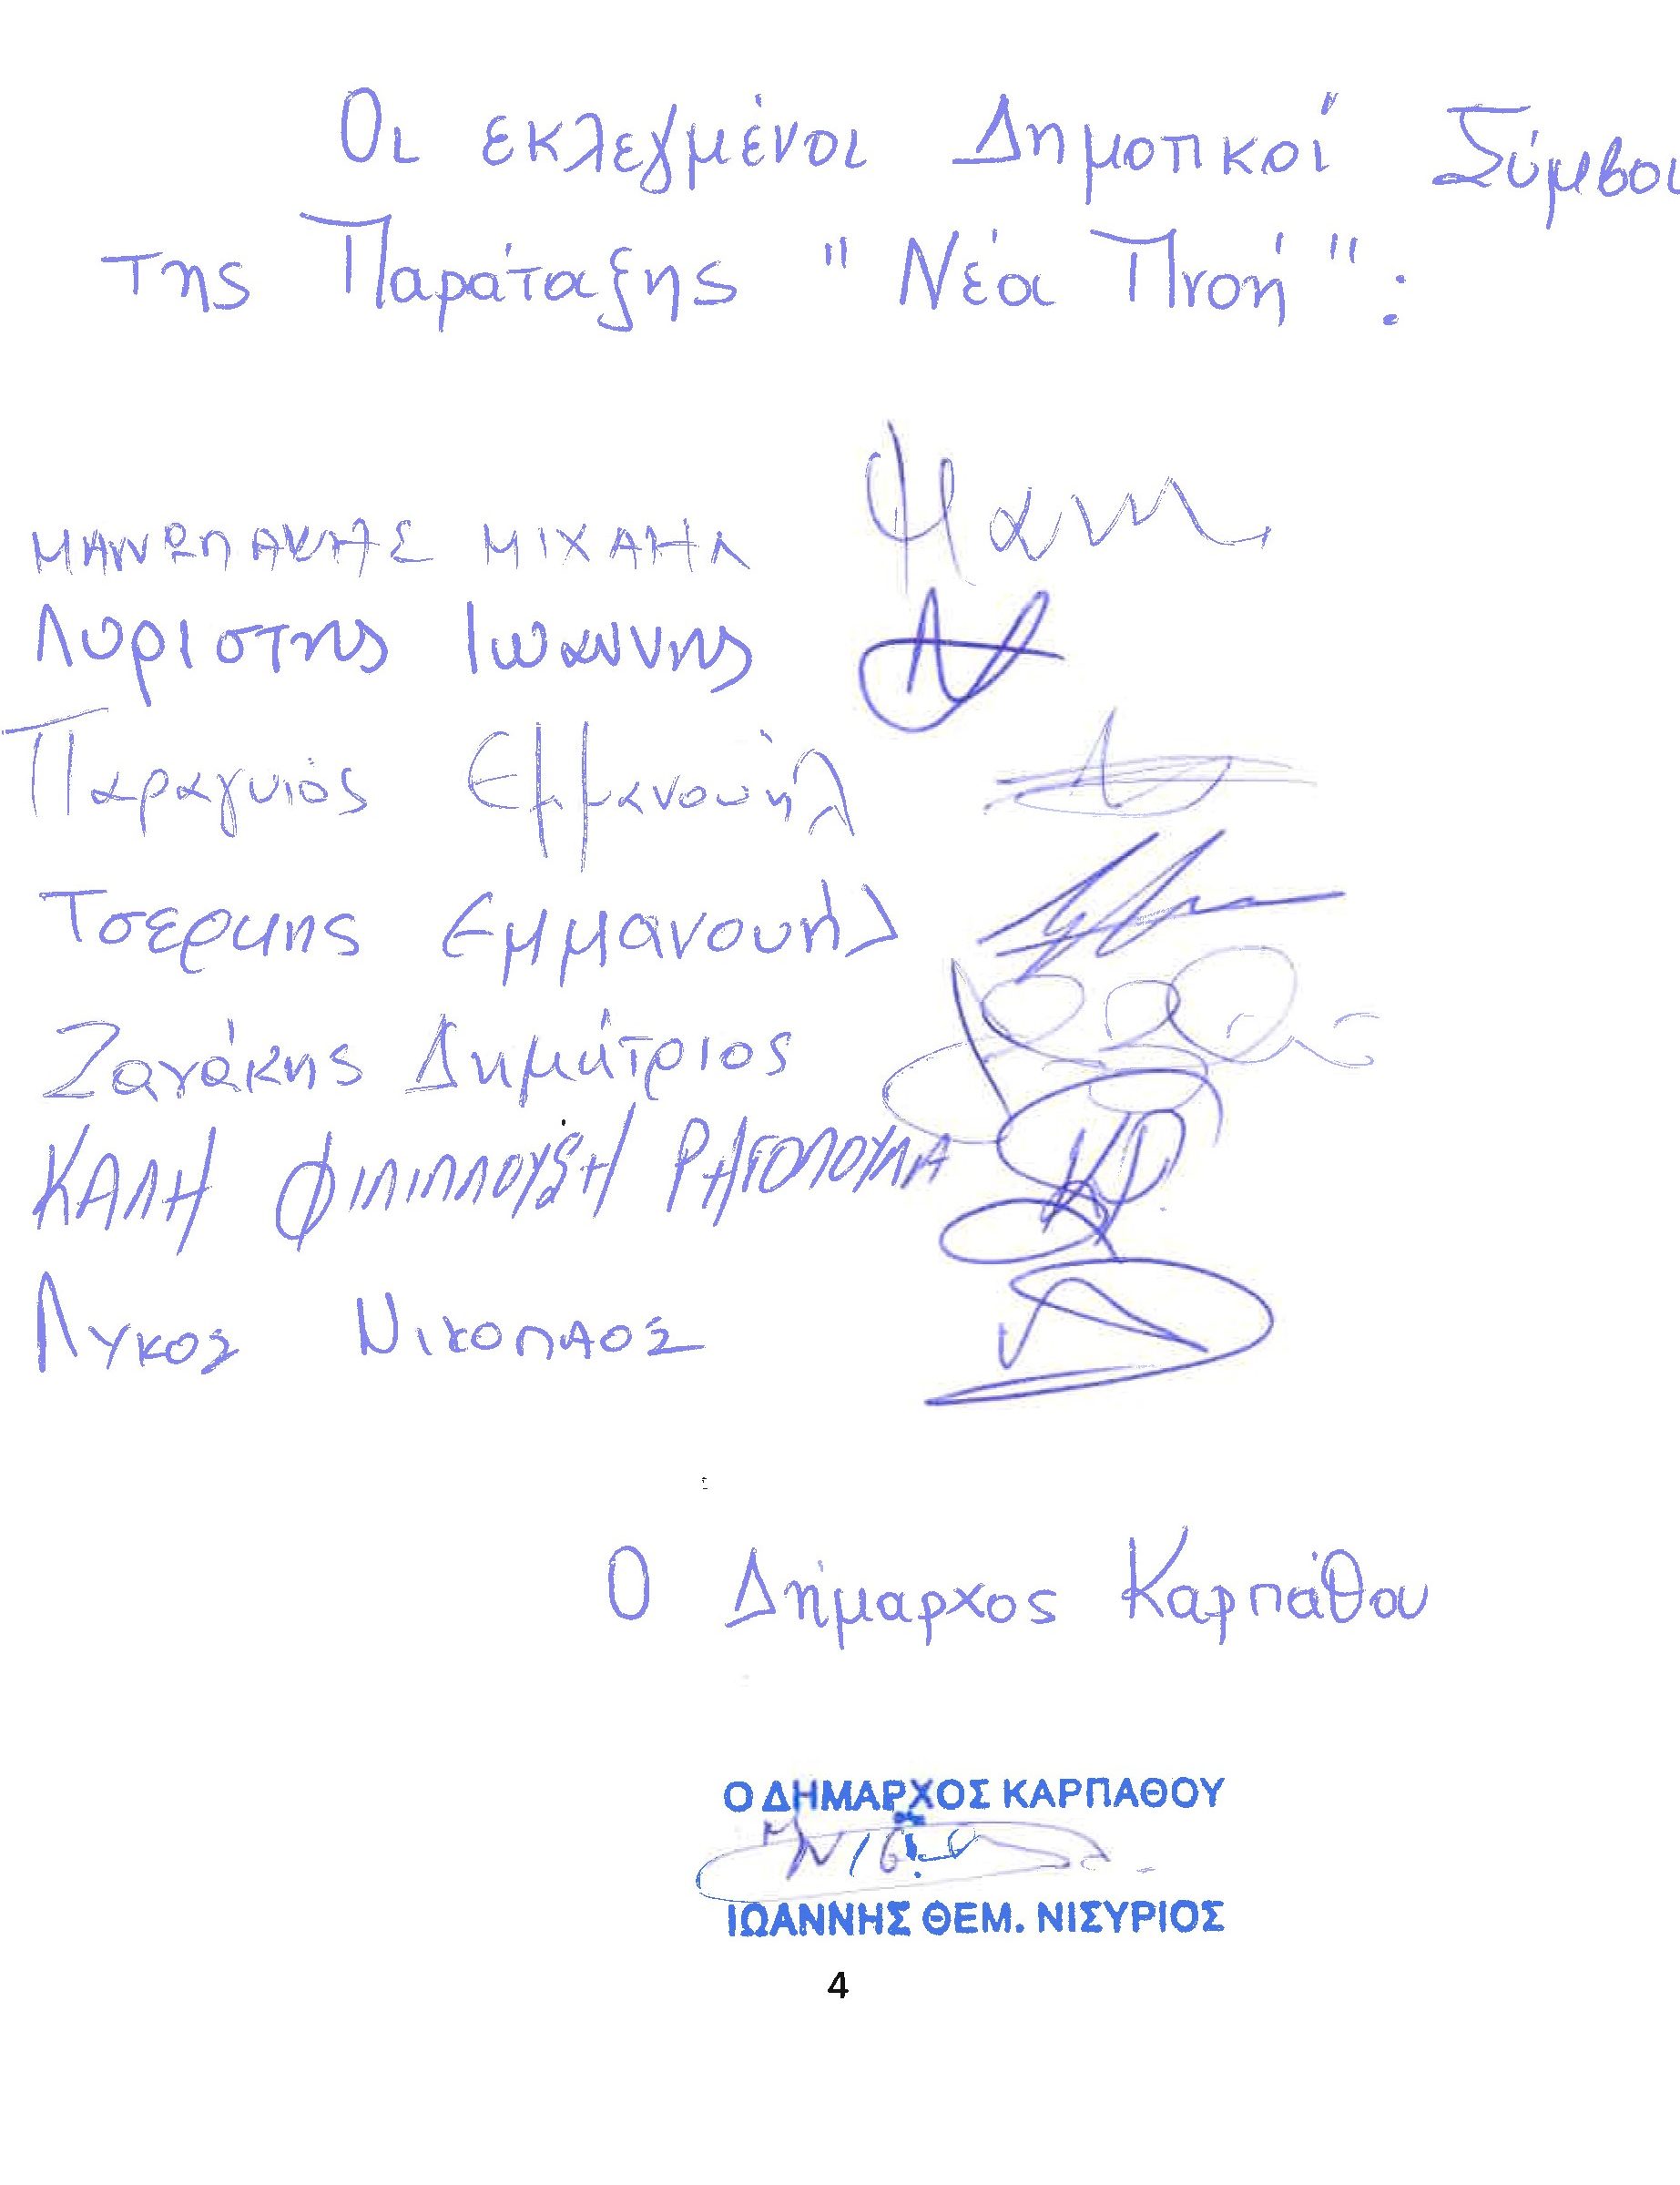 Οι εκλεγμένοι Δημοτικοί Σύμβου
της Παράταξης " Νέα Πνοή " :
ΜΙΧΑΗΛ
Λυριστης Ιωαννης
Παραγυιός Εμμανουήλ
Τσερκης Εμμανουήλ
Ζανάκης Δημήτριος
ΚΑΛΗ ΦΙΛΙΠΠΟΥΣΗ ΡΗΓΟΠΟΥΛΑ
Λυκος Νικολαος
Ο Δήμαρχος Καρπάθου
Ο ΔΗΜΑΡΧΟΣ ΚΑΡΠΑΘΟΥ
ΙΩΑΝΝΗΣ ΘΕΜ. ΝΙΣΥΡΙΟΣ
4